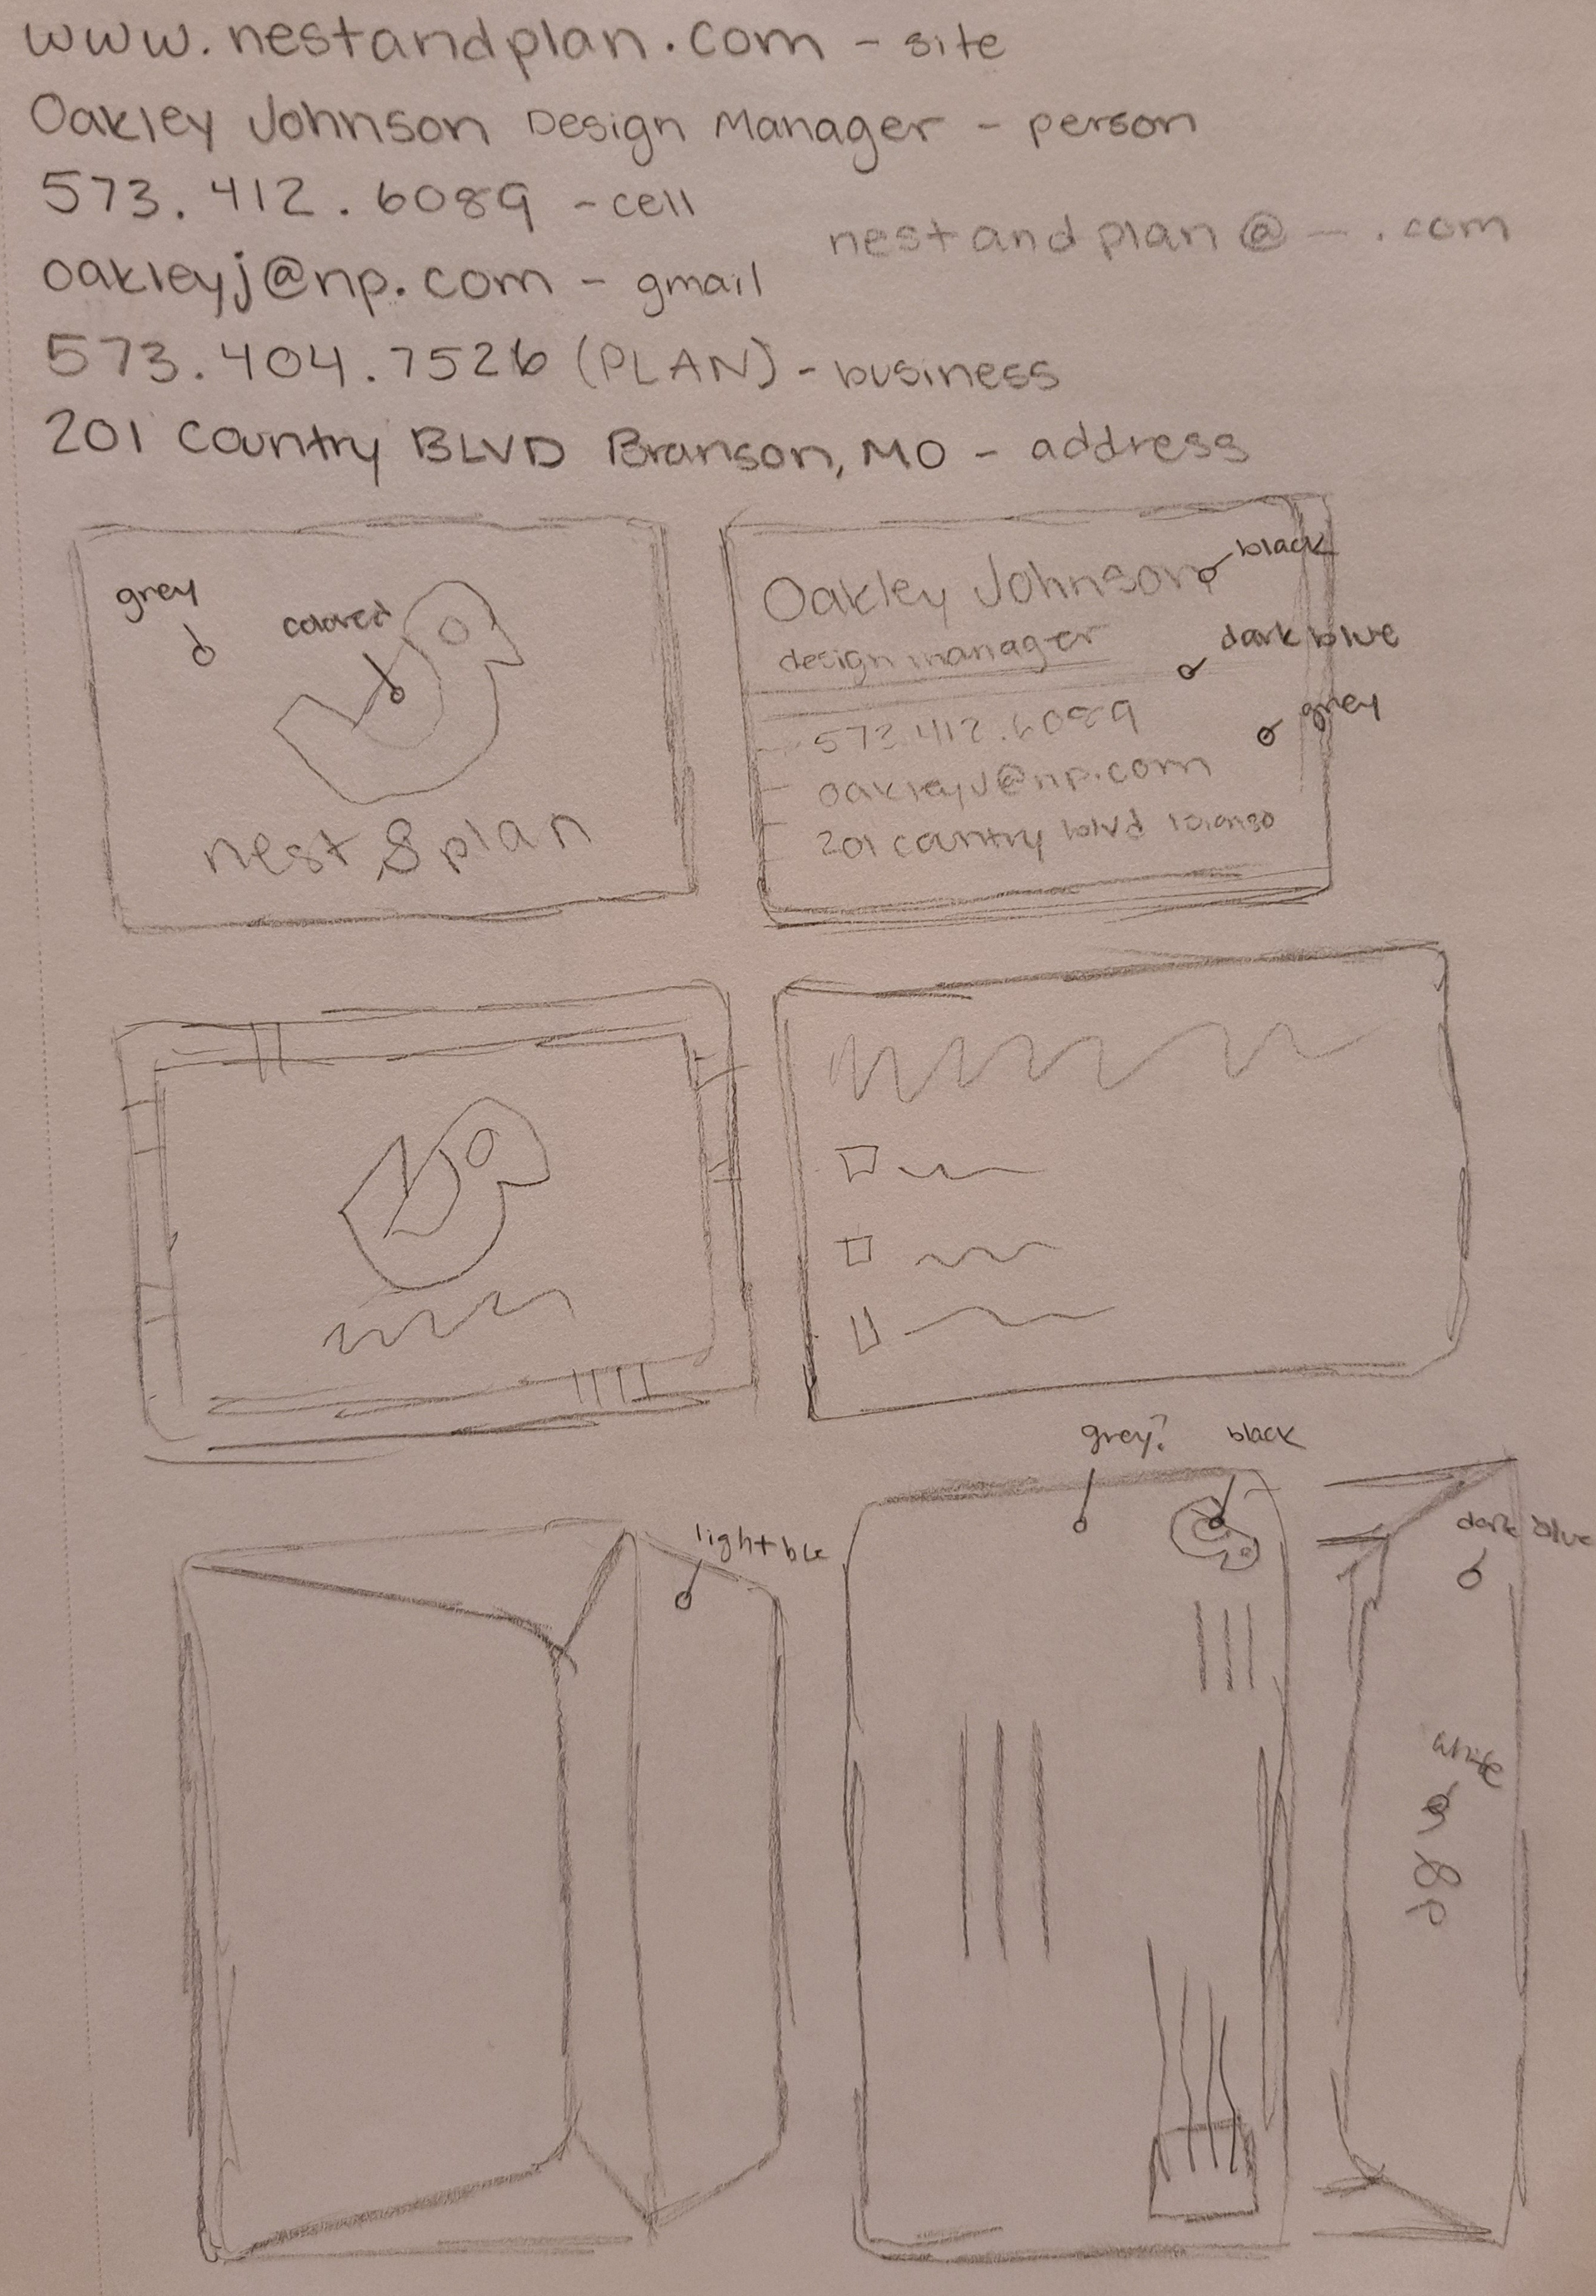 www.nestandplan.com - site
Oakley Johnson Design Manager - person
573.412.6089 - cell
nestandplan@-.com
oakleyj@np.com - gmail
573.404.7526 (PLAN) - business
201 Country BLVD Branson, MO - address
grey
colored
nest & plan
black
Oakley Johnson
dark blue
design manager
grey
573.412.6089
oakleyj@np.com
201 country blvd
grey?
black
light blue
dark blue
white